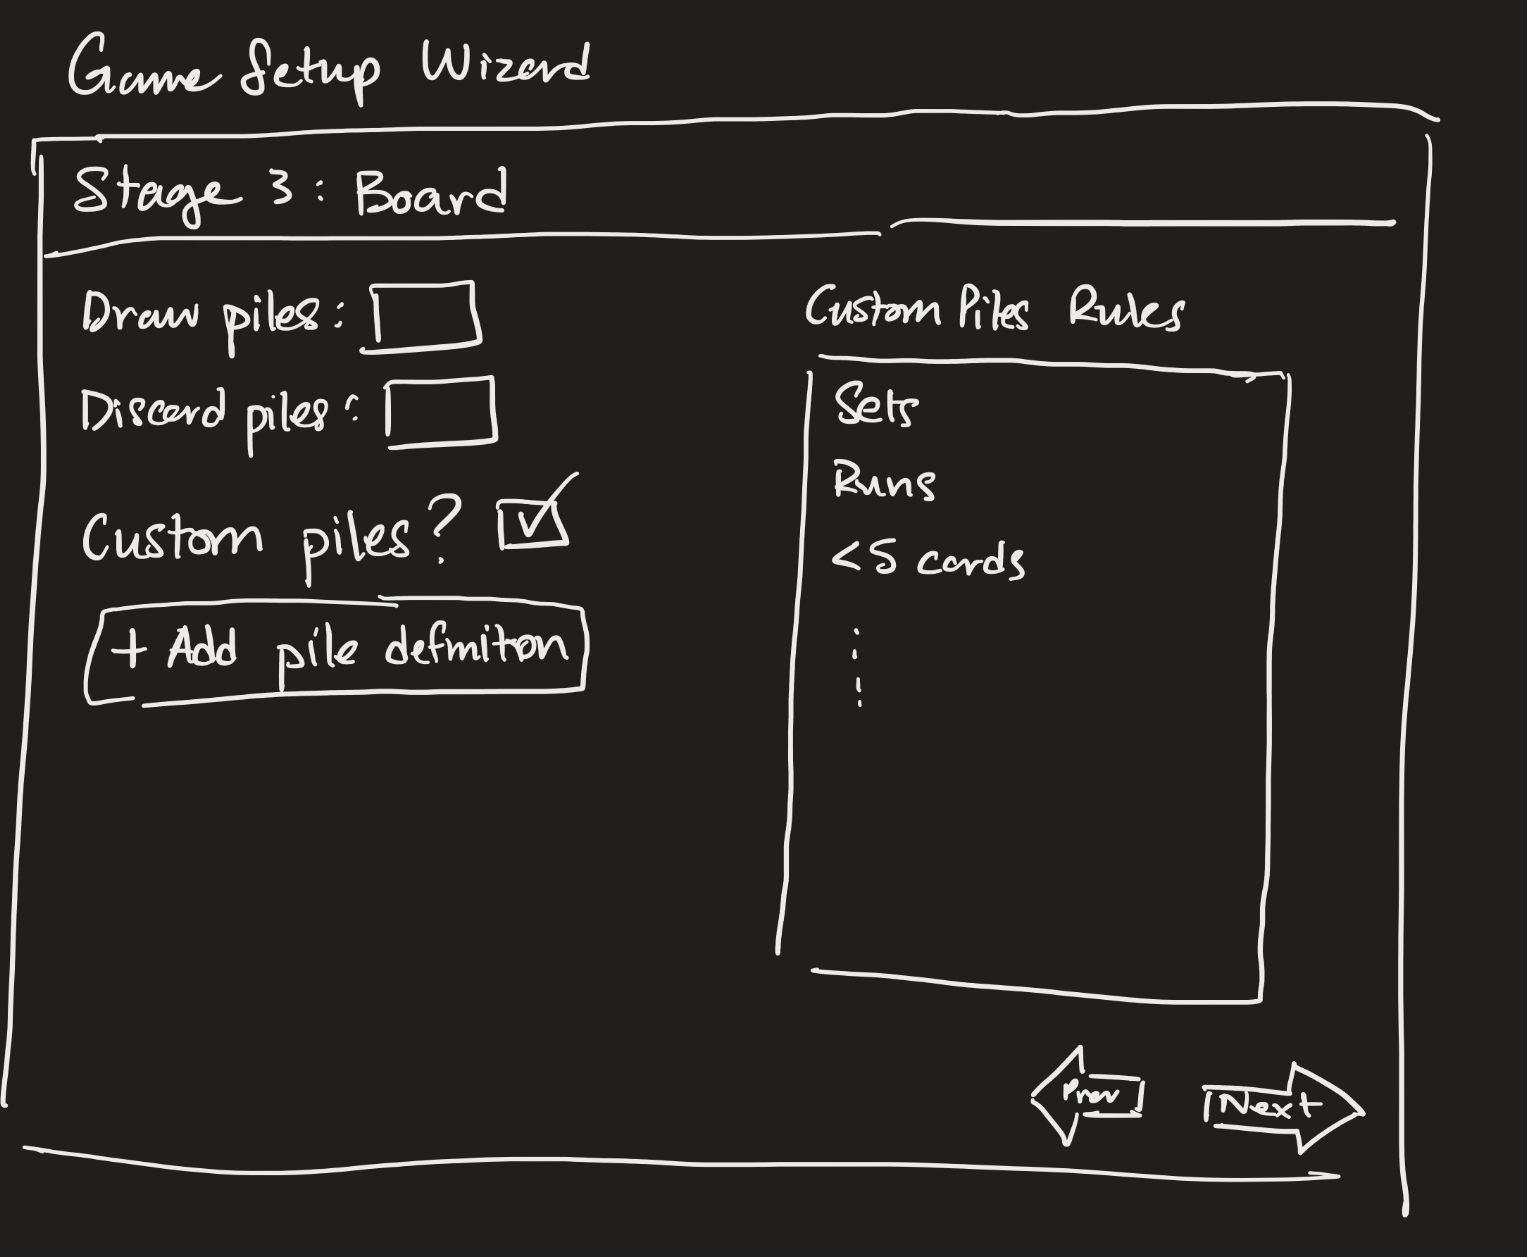 Game Setup Wizard
Stage 3: Board
Draw piles:
Discard piles:
Custom piles?
+ Add pile definition
Custom Piles Rules
Sets
Runs
<5 cards
Prev
Next